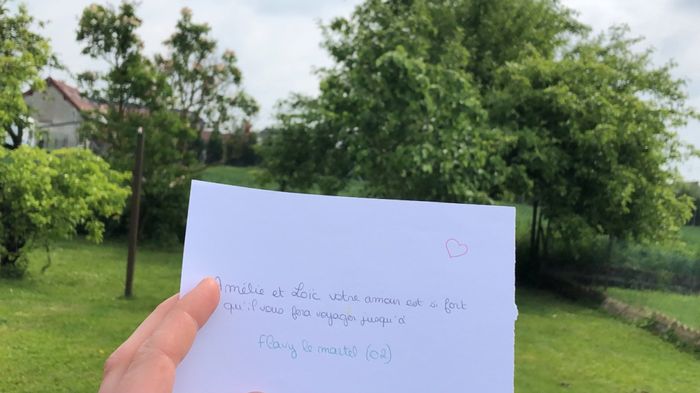 Amélie et Loïc votre amour est si fort
qu'il vous fera voyager jusqu'à
Flavy le martel (02)